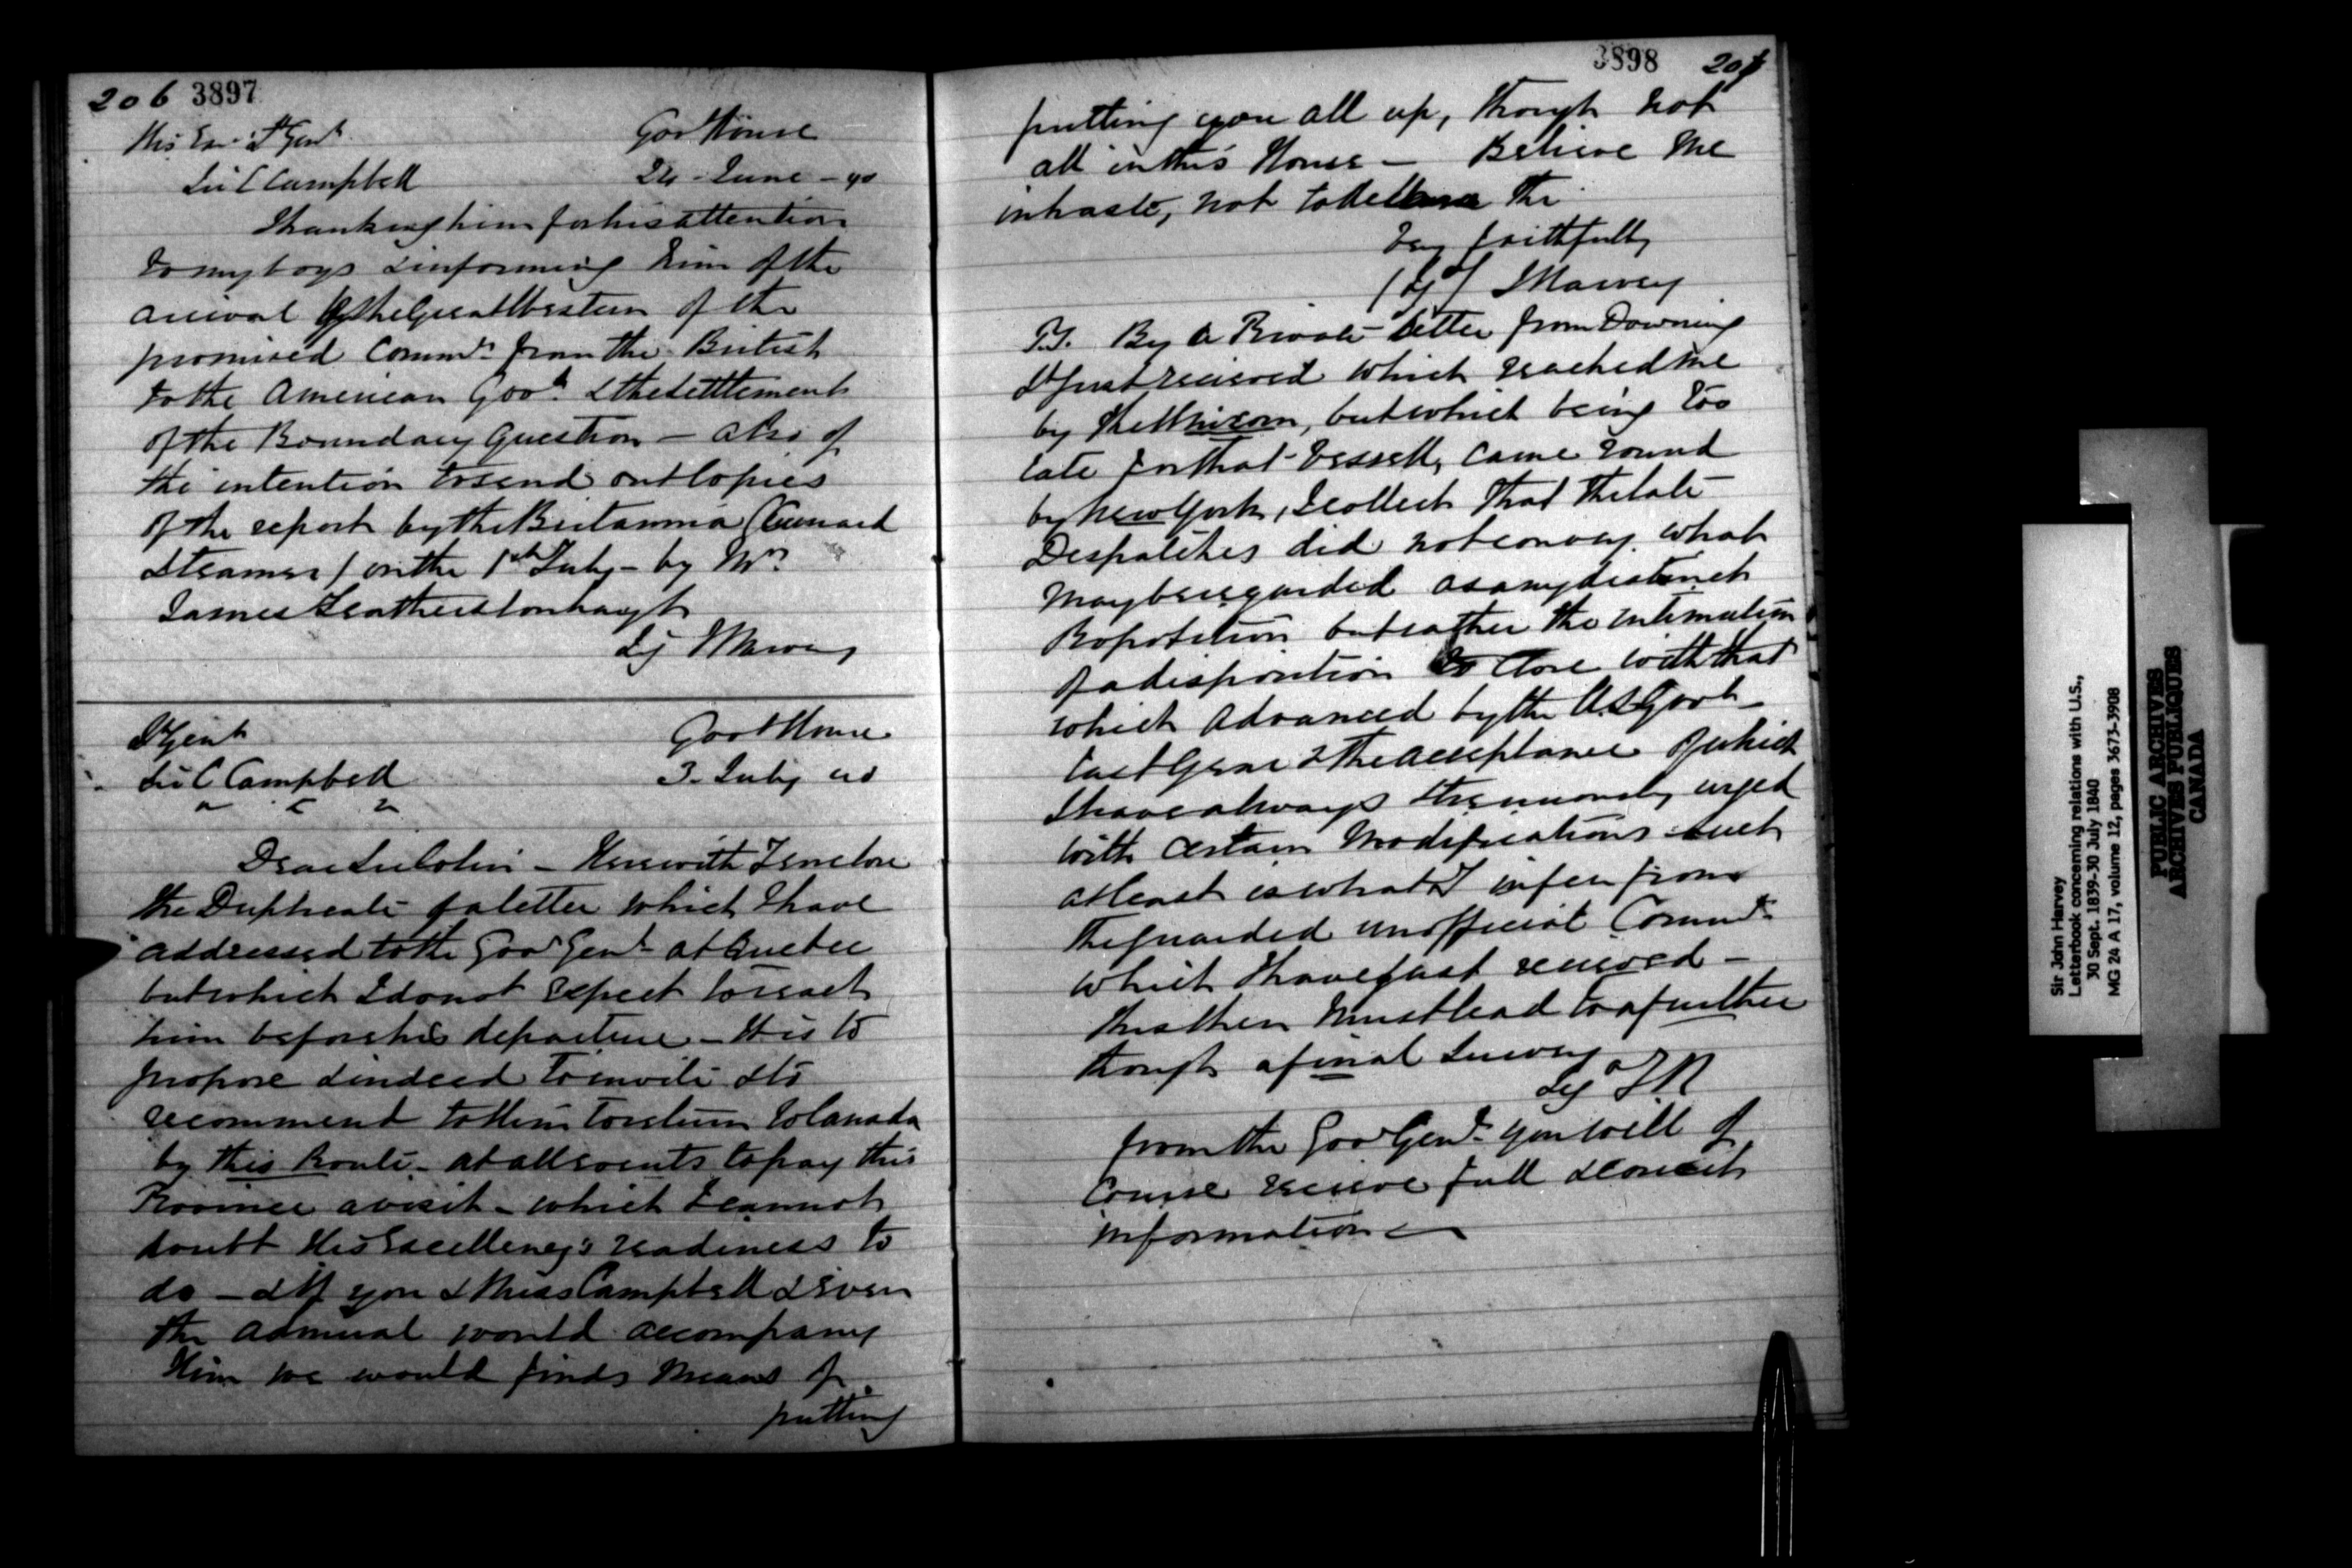 206 3897
His Exc Lt Genl Gov House
Sir C Campbell 24 - June - 40
Thanking him for his attention
to my boys & informing him of the
arrival by the Great Western of the
promised Commn from the British
to the American Govt & the settlement
of the Boundary Question - also of
the intention to send out Copies
of the report by the Britannia (Cunard
Steamer) on the 1st July - by Mr
James Featherstonhaugh
Sg J Harvey
Lt Genl Govt House
Sir C Campbell 3 - July 40
Dear Sir Colin - Herewith I enclose
the Duplicate of a letter which I have
addressed to the Govr Genl at Quebec
but which I do not expect to reach
him before his departure - It is to
propose & indeed to invite & to
recommend to Him to return to Canada
by this Route - at all events to pay this
Province a visit - which I cannot
doubt His Excellency's readiness to
do - & if you & Miss Campbell & even
the Admiral would accompany
Him we would finds means of
putting
3898 207
putting you all up, though not
all in this House - Believe me
in haste, not to the
Very faithfully
(Sg) J Harvey
P.S. By a Private letter from Downing
St just received which reached me
by the Unicorn, but which being too
late for that vessell, came round
by New York, I collect that the late
Despatches did not convey what
may be regarded as any distinct
Proposition but rather the intimation
of a disposition to close with that
which advanced by the U.S Govt
last year & the acceptance of which
I have always strenuously urged
with certain modifications such
at least is what I infer from
the guarded unofficial Commn
which I have just received -
this then must lead to a further
though a final Survey
Sg J H
from the Govr Genl you will of
course receive full & correct
information
Sir John Harvey
Letterbook concerning relations with U.S.,
30 Sept. 1839-30 July 1840
MG 24 A 17, volume 12, pages 3673-3908
PUBLIC ARCHIVES
ARCHIVES PUBLIQUES
CANADA